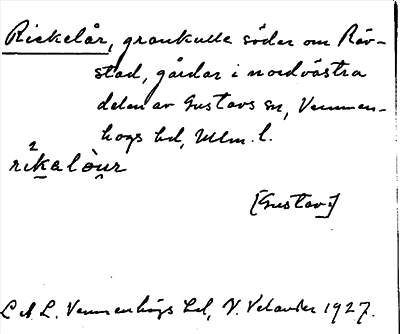 Rickelår, grankulle söder om Räv-
stad, gårdar i nordvästra
delen av Gustavs sn, Vemmen-
högs hd, Mlm. l.
rikalòur
[Gustavs]
L A L. Vemmenhögs hd, N. Velander 1927.